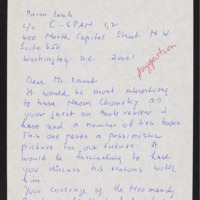 Brian Lamb
c/o C-SPAN 1,2
400 North Capital Street N W
Suite 650
Washington D.C. 20001
suggestion
Dear Mr. Lamb
It would be most interesting
to have Noam Chomsky as
your guest on Book review. I
have read a number of his books
This one paints a pessimistic
picture for our future. It
would be fascinating to have
you discuss his reasons with
him.
Your coverage of the Normandy